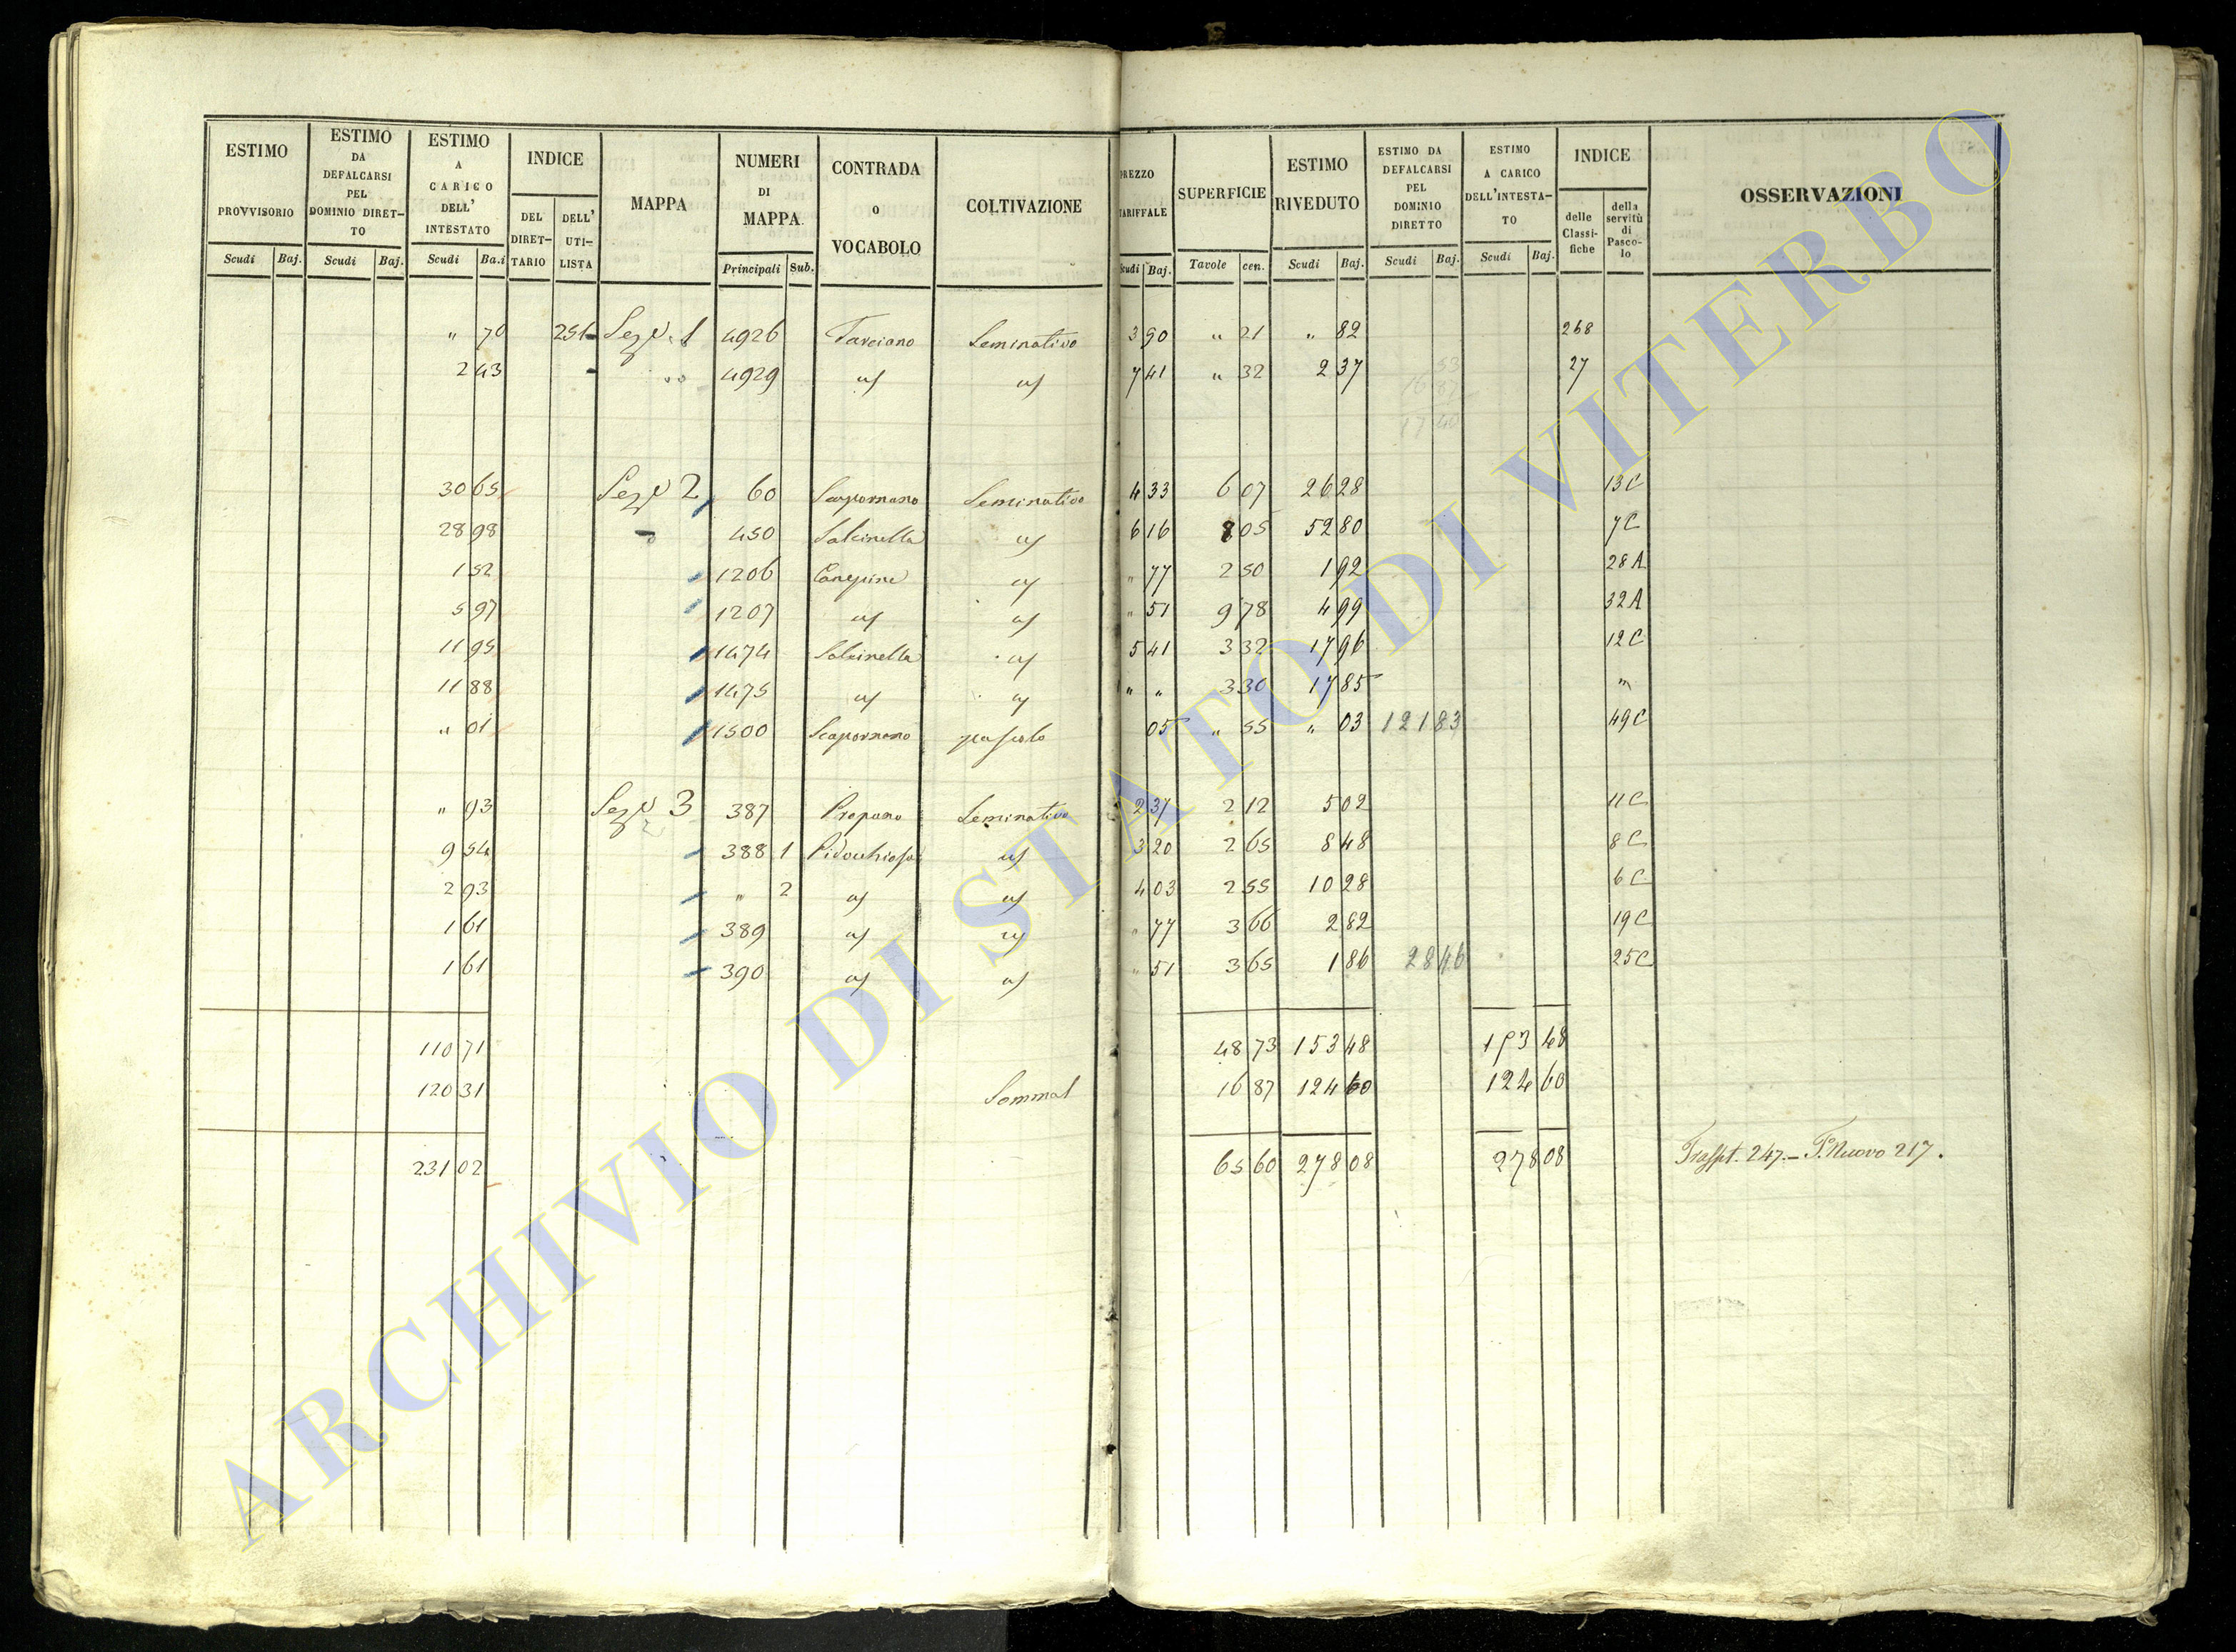 ESTIMO PROVVISORIO
Scudi Baj.
ESTIMO DA DEFALCARSI PEL DOMINIO DIRETTO
Scudi Baj.
ESTIMO A CARICO DELL' INTESTATO
Scudi Ba.i
INDICE
DEL DIRETTARIO
DELL' UTILISTA
MAPPA
NUMERI DI MAPPA
Principali Sub.
CONTRADA o VOCABOLO
COLTIVAZIONE
PREZZO TARIFFALE
Scudi Baj.
SUPERFICIE
Tavole cen.
ESTIMO RIVEDUTO
Scudi Baj.
ESTIMO DA DEFALCARSI PEL DOMINIO DIRETTO
Scudi Baj.
ESTIMO A CARICO DELL'INTESTATO
Scudi Baj.
INDICE
delle Classifiche
della servitù di Pascolo
OSSERVAZIONI
" 70 Sez.e 1 4926 Tarciano Seminativo 3 90 " 21 " 82 268
2 43 4929 " " 7 41 " 32 2 37 27
17 40
30 65 Sez.e 2 60 Scapornano Seminativo 4 33 6 07 26 28 13 C
28 98 450 Salcinella " 6 16 8 05 52 80 7 C
1 52 1206 Canepine " " 77 2 50 1 92 28 A
5 97 1207 " " " 51 9 78 4 99 32 A
11 95 1474 Salcinella " 5 41 3 32 17 96 12 C
11 88 1475 " " " " 3 30 17 85 "
" 01 1500 Scapornano pascolo 05 " 55 " 03 121 83 49 C
" 93 Sez.e 3 387 Seminativo 2 37 2 12 5 02 11 C
9 54 388 1 Pidocchiosa " 3 20 2 65 8 48 8 C
2 93 " 2 " " 4 03 2 55 10 28 6 C
1 61 389 " " " 77 3 66 2 82 19 C
1 61 390 " " " 51 3 65 1 86 28 46 25 C
110 71 48 73 153 48 153 48
120 31 Somma 16 87 124 60 124 60
231 02 65 60 278 08 278 08 Traspt. 247. – P. Nuovo 217.
ARCHIVIO DI STATO DI VITERBO